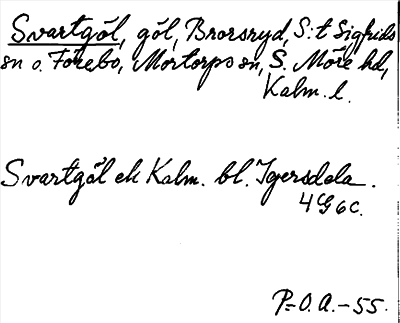 Svartgöl, göl, Brorsryd, S:t Sigfrids
sn o. Förebo, Mortorps sn, S. Möre hd,
Kalm. l.
Svartgöl ek Kalm. bl. Igersdela.
4 G 6 c.
P-O.A.-55.